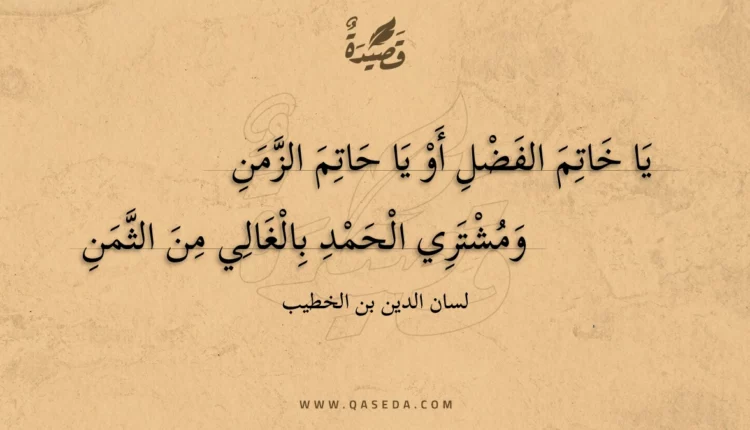 قَصِيدَةٌ
يَا خَاتِمَ الفَضْلِ أَوْ يَا حَاتِمَ الزَّمَنِ
وَمُشْتَرِي الْحَمْدِ بِالْغَالِي مِنَ الثَّمَنِ
لسان الدين بن الخطيب
WWW.QASEDA.COM